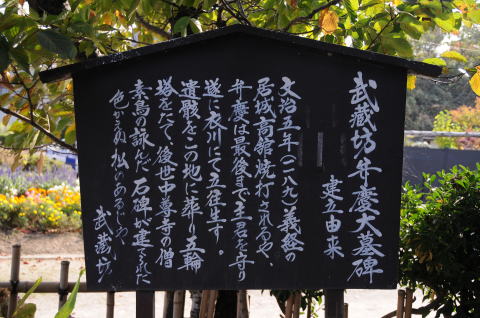 武蔵坊弁慶大墓碑
建立由来
文治五年(一一八九)義経の
居城高館焼打されるや、
弁慶は最後まで主君を守り
遂に衣川にて立往生す、
遺骸をこの地に葬り五輪
塔をたて、後世中尊寺の僧
素鳥の詠んだ石碑が建てられた
色かえぬ松のあるじや、
武蔵坊